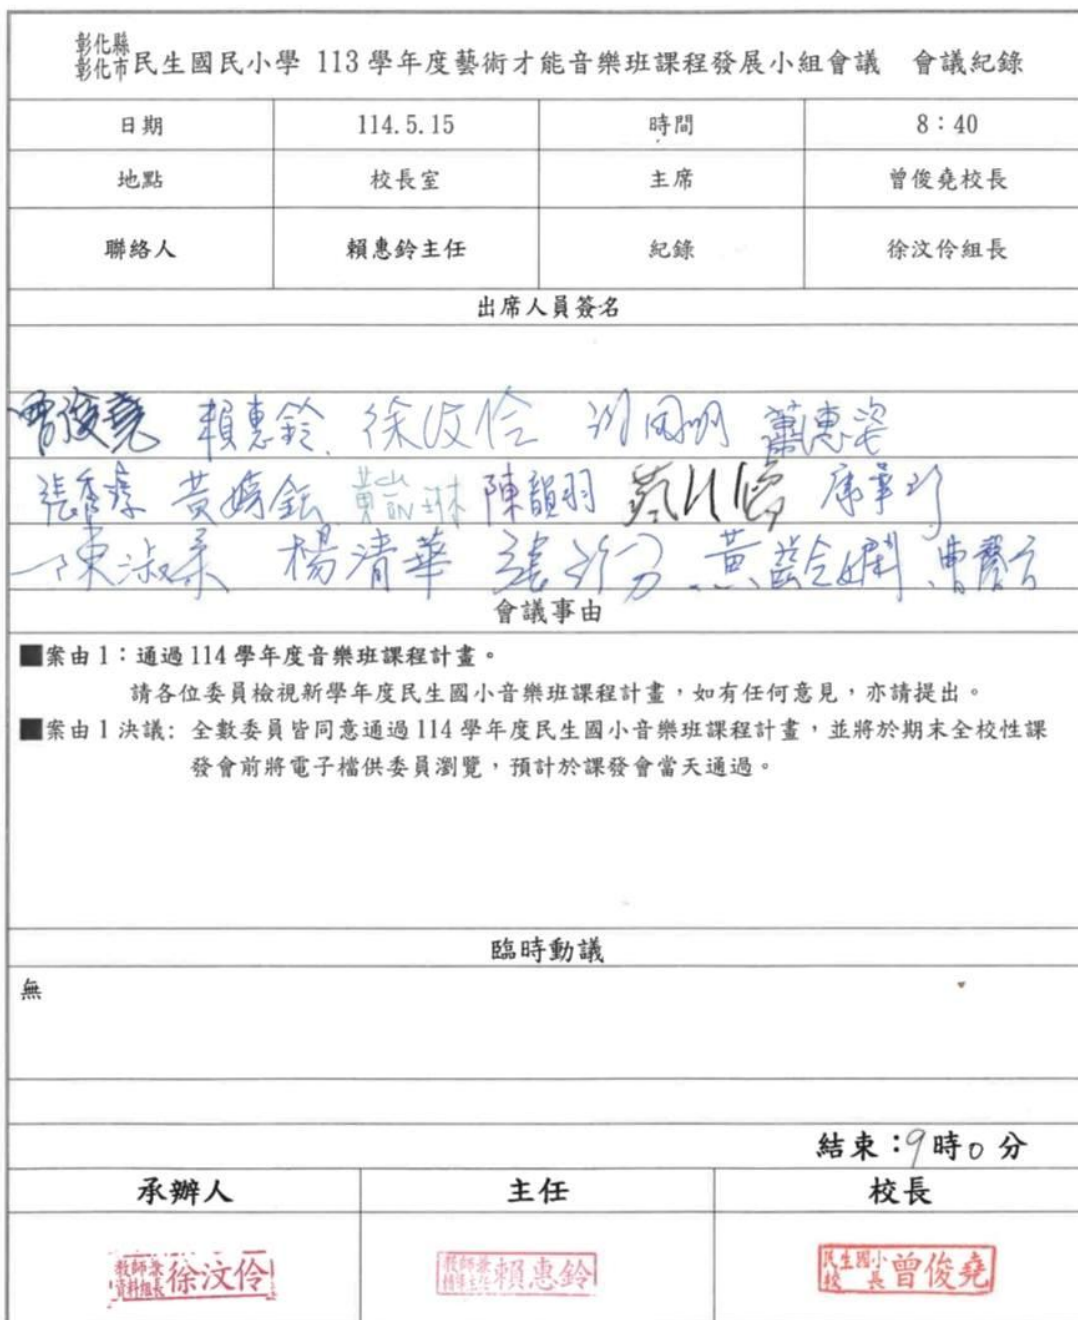 彰化縣
彰化市民生國民小學 113 學年度藝術才能音樂班課程發展小組會議 會議紀錄
日期 114.5.15 時間 8：40
地點 校長室 主席 曾俊堯校長
聯絡人 賴惠鈴主任 紀錄 徐汶伶組長
出席人員簽名
曾俊堯 賴惠鈴 徐汶伶 蕭惠姿
陳韻羽
陳淑柔 楊清華
會議事由
■案由 1：通過 114 學年度音樂班課程計畫。
請各位委員檢視新學年度民生國小音樂班課程計畫，如有任何意見，亦請提出。
■案由 1 決議: 全數委員皆同意通過 114 學年度民生國小音樂班課程計畫，並將於期末全校性課
發會前將電子檔供委員瀏覽，預計於課發會當天通過。
臨時動議
無
結束：9時0分
承辦人 主任 校長
教師兼
資料組長 徐汶伶
教師兼
輔導主任 賴惠鈴
民生國小
校長 曾俊堯